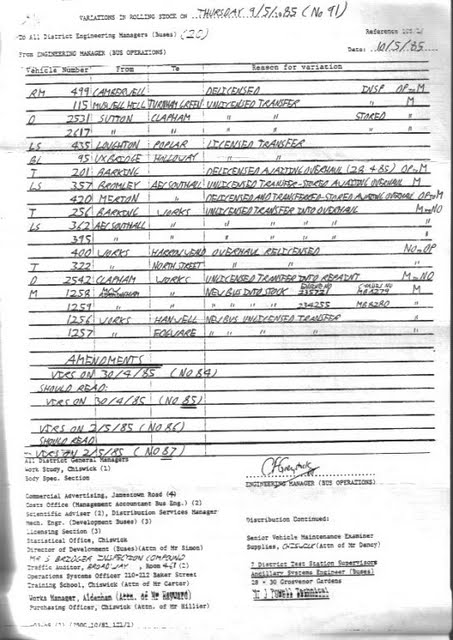 VARIATIONS IN ROLLING STOCK ON THURSDAY 9/5/85 (No 91)
To All District Engineering Managers (Buses) (20)
Reference 121/1/
From ENGINEERING MANAGER (BUS OPERATIONS)
Date: 10/5/85
Vehicle Number From To Reason for variation
RM 499 CAMBERWELL DELICENSED INSP OP-M
115 MUSWELL HILL TURNHAM GREEN UNLICENSED TRANSFER " M
D 2531 SUTTON CLAPHAM " " STORED "
2617 " " " " " "
LS 435 LOUGHTON POPLAR LICENSED TRANSFER
BL 95 UXBRIDGE HOLLOWAY " "
T 201 BARKING DELICENSED AWAITING OVERHAUL (28 4 85) OP-M
LS 357 BROMLEY AEC SOUTHALL UNLICENSED TRANSFER-STORED AWAITING OVERHAUL M
420 MERTON " DELICENSED AND TRANSFERRED-STORED AWAITING OVERHAUL OP-M
T 256 BARKING WORKS UNLICENSED TRANSFER INTO OVERHAUL M-NO
LS 362 AEC SOUTHALL " " " " "
395 " " " " " "
400 WORKS HARROW WEALD OVERHAUL RELICENSED NO-OP
T 322 " NORTH STREET " "
D 2542 CLAPHAM WORKS UNLICENSED TRANSFER INTO REPAINT M-NO
M 1258 " NEW BUS INTO STOCK M
1259 " " " " " 234255 "
1256 WORKS HANWELL NEW BUS UNLICENSED TRANSFER
1257 " EDGWARE " " " "
AMENDMENTS
VIRS ON 30/4/85 (NO 84)
SHOULD READ:
VIRS ON 30/4/85 (NO 85)
VIRS ON 2/5/85 (NO 86)
SHOULD READ
VIRS ON 2/5/85 (NO 87)
All District General Managers
Work Study, Chiswick (1)
Body Spec. Section
ENGINEERING MANAGER (BUS OPERATIONS)
Commercial Advertising, Jamestown Road (4)
Costs Office (Management Accountant Bus Eng.) (2)
Scientific Adviser (2), Distribution Services Manager
Mech. Engr. (Development Buses) (3)
Licensing Section (3)
Statistical Office, Chiswick
Director of Development (Buses)(Attn of Mr Simon)
MR S BRZOGER INSPECTION COMPOUND
Traffic Auditor, BROADWAY, Room 467 (2)
Operations Systems Officer 210-212 Baker Street
Training School, Chiswick (Attn of Mr Carter)
Works Manager, Aldenham (Attn. of Mr Hayward)
Purchasing Officer, Chiswick (Attn of Mr Hillier)
Distribution Continued:
Senior Vehicle Maintenance Examiner
Supplies, CHISWICK (Attn of Mr Dancy)
7 District Test Station Supervisors
Ancillary Systems Engineer (Buses)
28 - 30 Grosvenor Gardens
Mr J Powell Technical